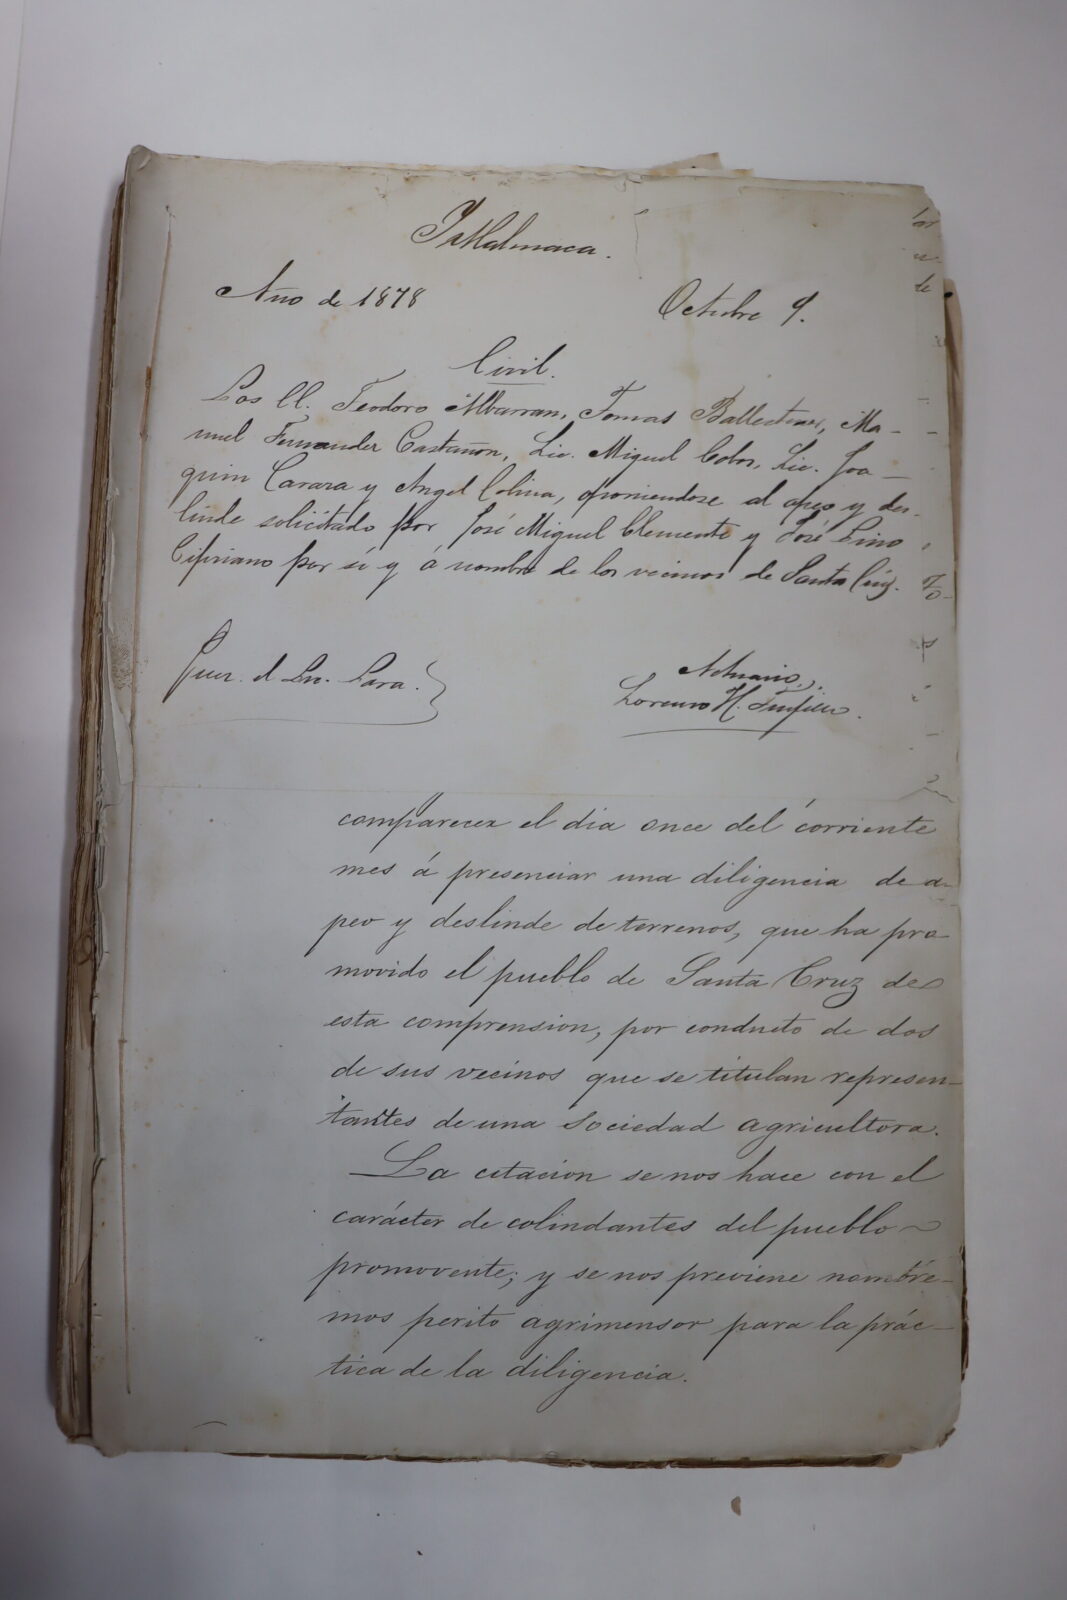 Ixtlahuaca.
Año de 1878 Octubre 9.
Civil.
Los CC. Teodoro Albarran, Tomas Ballesteros, Ma-
nuel Fernandez Castañon, Lic. Miguel Lic. Joa-
quin y Angel Colina, oponiendose al apeo y des-
linde solicitado por José Miguel Clemente y José Lino
Cipriano por sí y á nombre de los vecinos de Santa Cruz.
Juez. el Lic. Lara.
Actuario.
Lorenzo H. Trujillo.
comparecer el dia once del corriente
mes á presenciar una diligencia de a-
peo y deslinde de terrenos, que ha pro-
movido el pueblo de Santa Cruz de
esta comprension, por conducto de dos
de sus vecinos que se titulan represen-
tantes de una Sociedad agricultora.
La citacion se nos hace con el
carácter de colindantes del pueblo
promovente; y se nos previene nombre-
mos perito agrimensor para la prác-
tica de la diligencia.